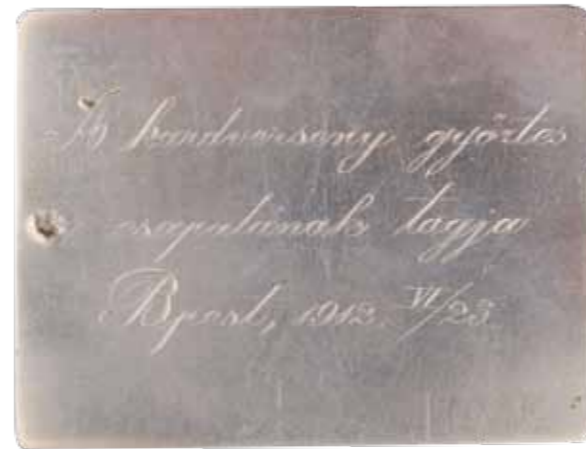 A kardverseny győztes
csapatának tagja
Bpest, 1912. VI/23.